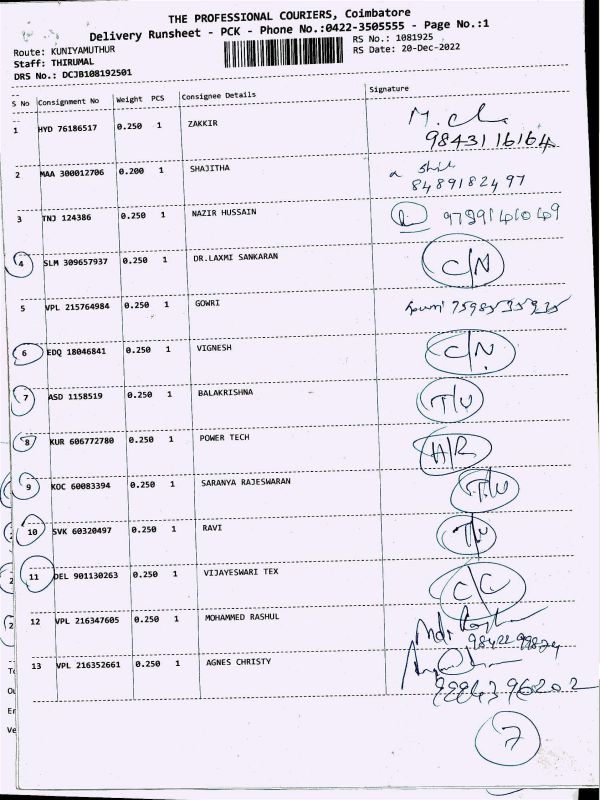 THE PROFESSIONAL COURIERS, Coimbatore
Delivery Runsheet - PCK - Phone No.:0422-3505555 - Page No.:1
Route: KUNIYAMUTHUR RS No.: 1081925
Staff: THIRUMAL RS Date: 20-Dec-2022
DRS No.: DCJB108192501
S No Consignment No Weight PCS Consignee Details Signature
1 HYD 76186517 0.250 1 ZAKKIR
9843116164
2 MAA 300012706 0.200 1 SHAJITHA
8489182497
3 TNJ 124386 0.250 1 NAZIR HUSSAIN
4 SLM 309657937 0.250 1 DR.LAXMI SANKARAN C/N
5 VPL 215764984 0.250 1 GOWRI
6 EDQ 18046841 0.250 1 VIGNESH C/N.
7 ASD 1158519 0.250 1 BALAKRISHNA T/U
8 KUR 606772780 0.250 1 POWER TECH H/R
9 KOC 60083394 0.250 1 SARANYA RAJESWARAN T/U
10 SVK 60320497 0.250 1 RAVI T/U
11 DEL 901130263 0.250 1 VIJAYESWARI TEX C/C
12 VPL 216347605 0.250 1 MOHAMMED RASHUL
13 VPL 216352661 0.250 1 AGNES CHRISTY
7